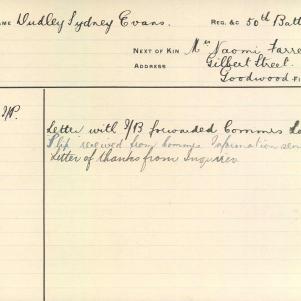 AME Dudley Sydney Evans. REG. &C 50th Batt
NEXT OF KIN Mrs Naomi Farre
ADDRESS Gilbert Street.
Goodwood
Letter with I/B forwarded Commrs Lo
Slip received from Commrs Information
Letter of thanks from Inquirer